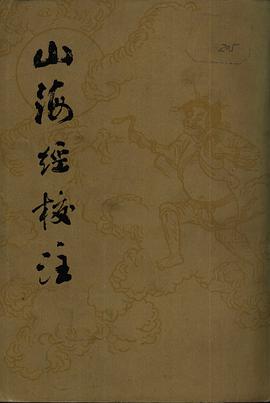 山海经校注
205